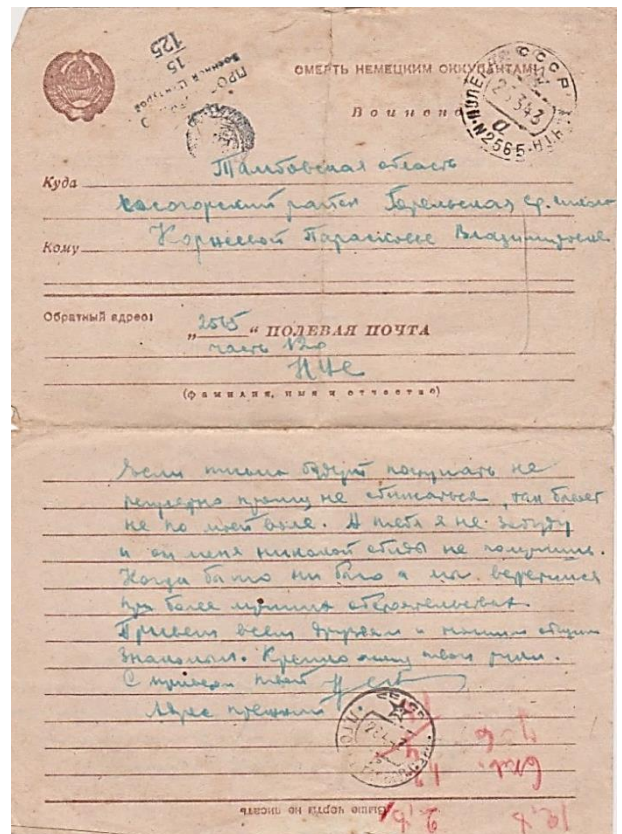 СМЕРТЬ НЕМЕЦКИМ ОККУПАНТАМ!
ПРО
Военной Цензурой
15
125
Воинское
СССР
ПОЛЕВАЯ ПОЧТА
23 3 43
а
N2565
Куда Тамбовская область
район Горельская ср. школа
Кому Корнеевой Парасковье Владимировне
Обратный адрес:
„2565“ ПОЛЕВАЯ ПОЧТА
часть
(фамилия, имя и отчество)
Если письма будут поступать не
регулярно прошу не обижаться, так бывает
не по моей воле. А тебя я не забуду
и от меня никакой обиды не получишь.
Когда бы то ни было а мы вернемся
при более лучших обстоятельствах.
Привет всем друзьям и нашим общим
знакомым. Крепко жму твои руки.
С приветом твой
Адрес прежний
Выше черты не писать